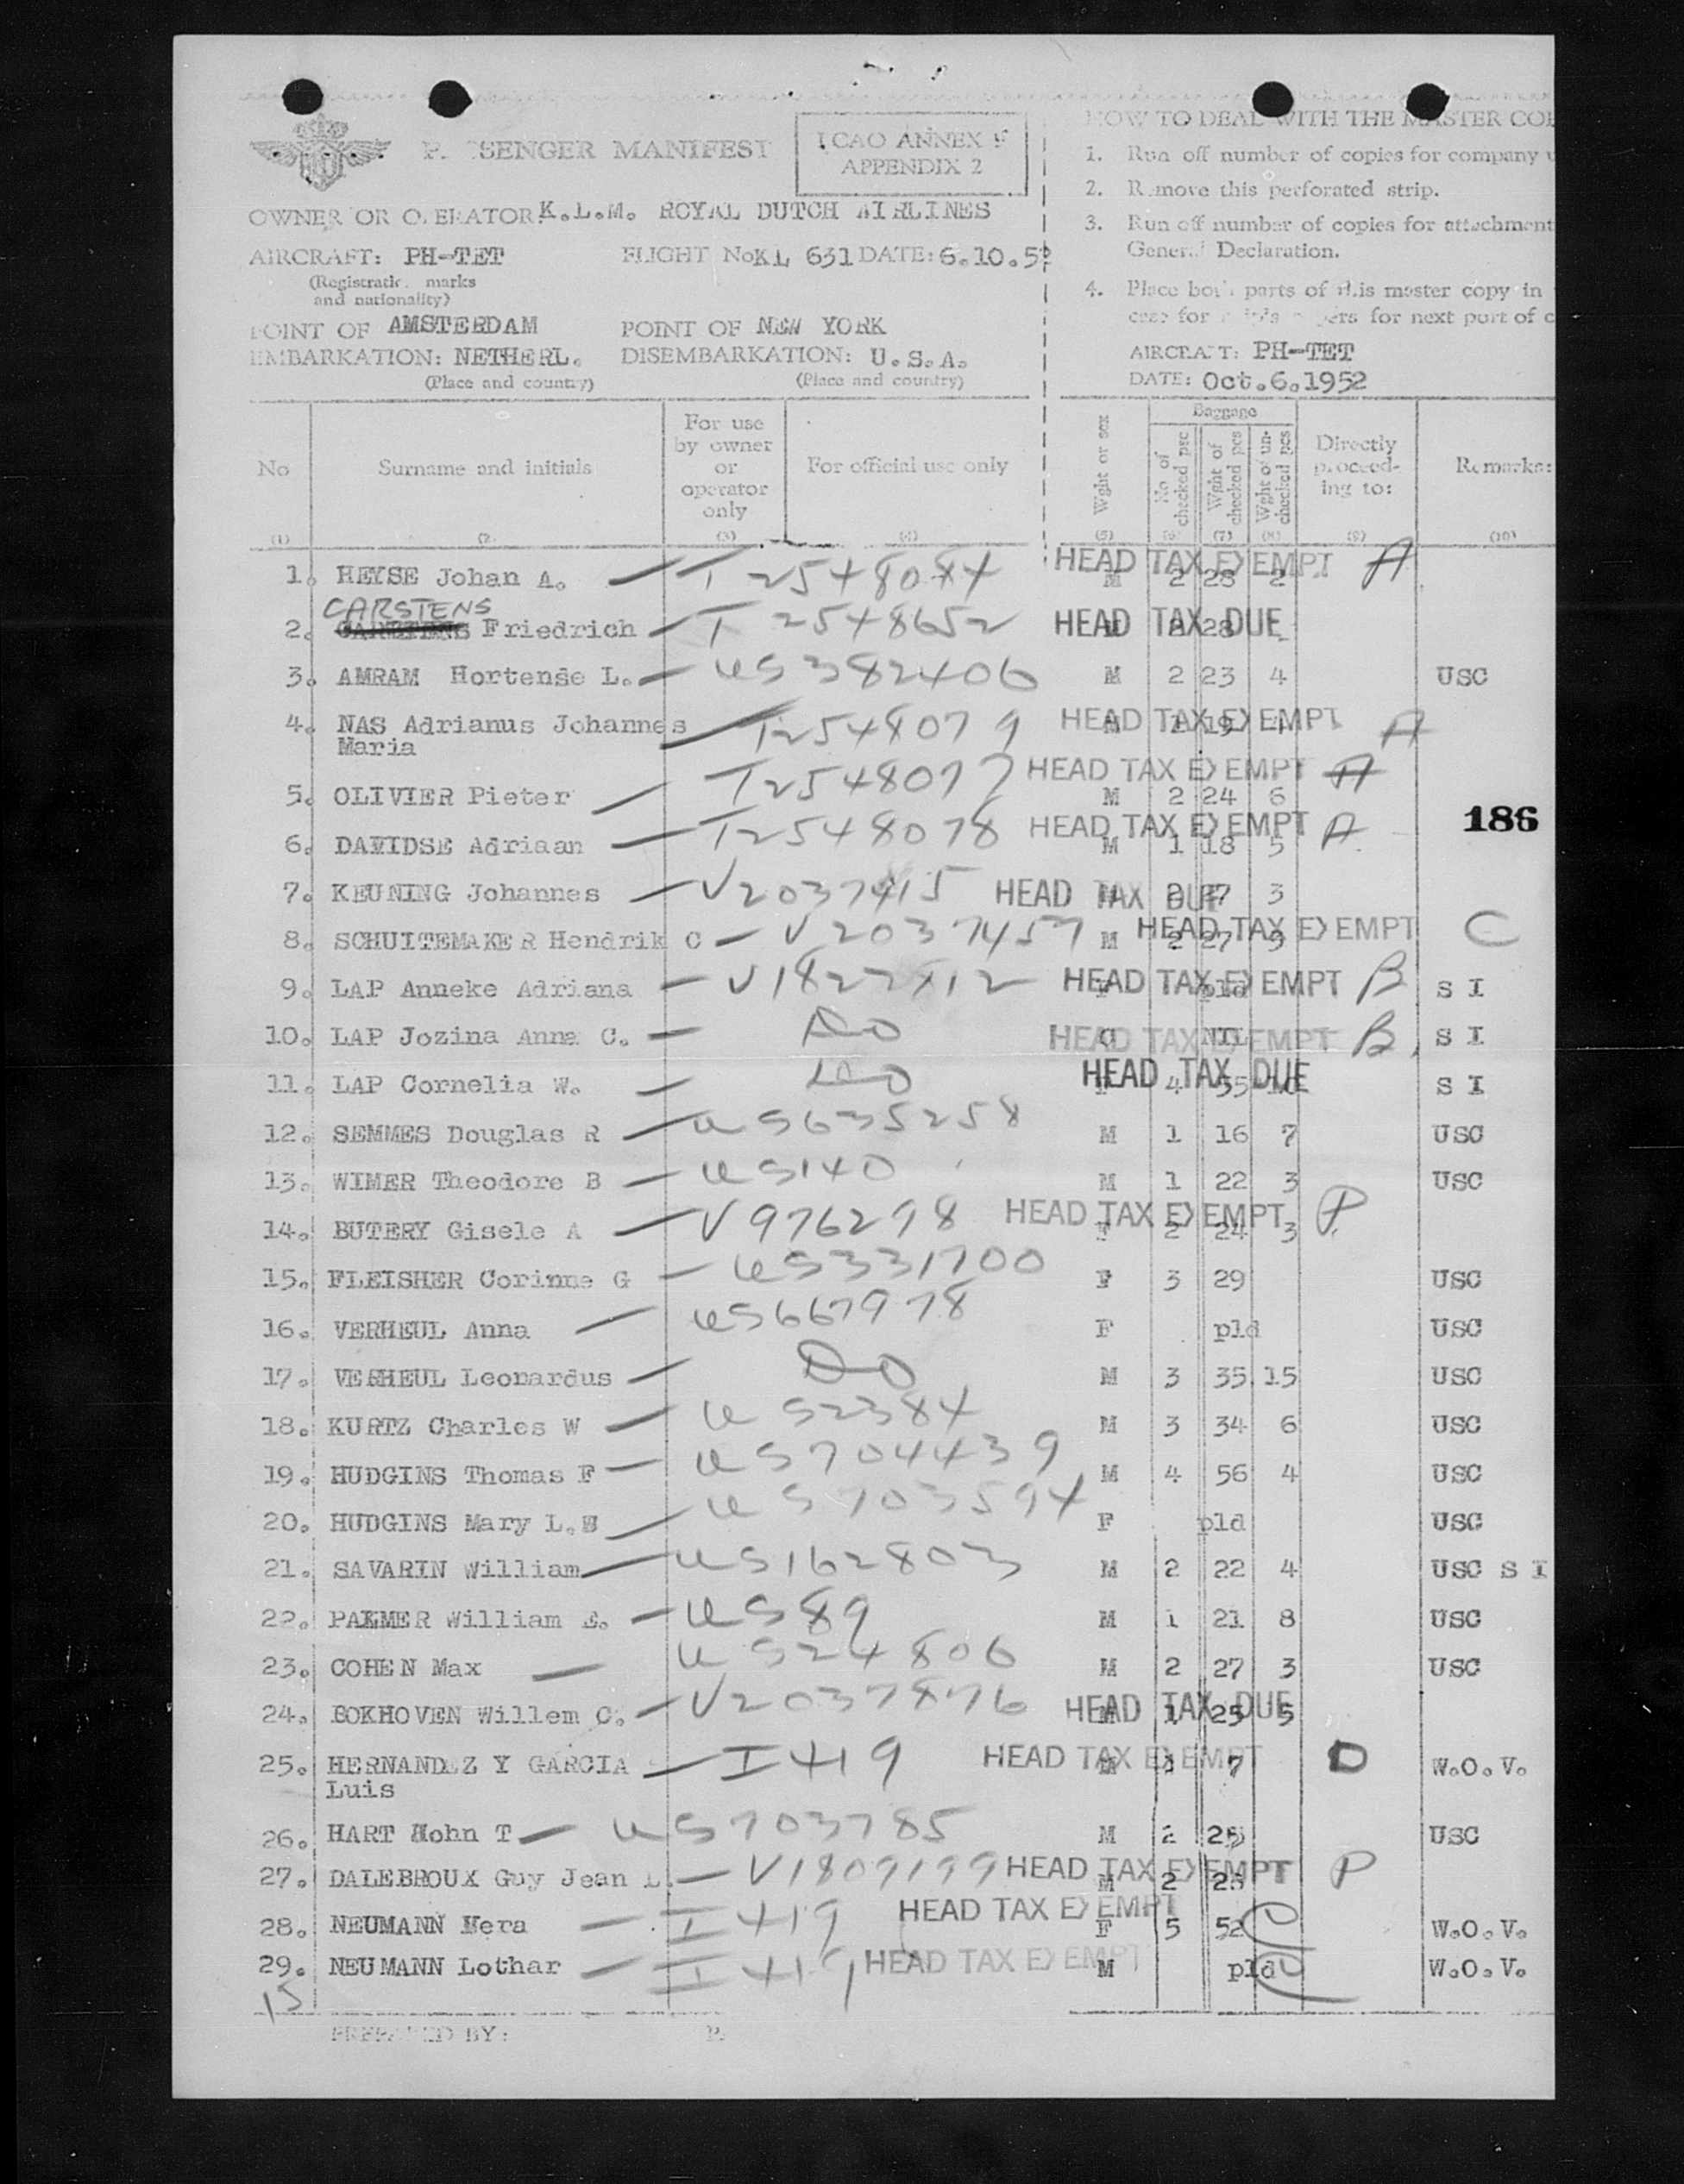 PASSENGER MANIFEST
ICAO ANNEX 9
APPENDIX 2
OWNER OR OPERATOR K.L.M. ROYAL DUTCH AIRLINES
AIRCRAFT: PH-TET FLIGHT No KL 631 DATE: 6.10.52
(Registration marks
and nationality)
POINT OF AMSTERDAM POINT OF NEW YORK
EMBARKATION: NETHERL. DISEMBARKATION: U.S.A.
(Place and country) (Place and country)
HOW TO DEAL WITH THE MASTER COP
1. Run off number of copies for company u
2. Remove this perforated strip.
3. Run off number of copies for attachment
General Declaration.
4. Place both parts of this master copy in
for next part of c
AIRCRAFT: PH-TET
DATE: Oct.6.1952
No Surname and initials For use by owner or operator only For official use only Wght or sex Baggage No of checked pcs Wght of checked pcs Wght of un-checked pcs Directly proceed-ing to: Remarks:
(1) (2) (3) (4) (5) (6) (7) (8) (9) (10)
1. HEYSE Johan A. — T 2548084 HEAD TAX EXEMPT A M 2 28 2
CARSTENS
2. Friedrich — T 2548652 HEAD TAX DUE 28
3. AMRAM Hortense L. — US 382406 M 2 23 4 USC
4. NAS Adrianus Johannes — T2548079 HEAD TAX EXEMPT A M 19
Maria
5. OLIVIER Pieter — T2548077 HEAD TAX EXEMPT A M 2 24 6
186
6. DAVIDSE Adriaan — T2548078 HEAD TAX EXEMPT A M 1 18 5
7. KEUNING Johannes — V2037415 HEAD TAX DUE M 2 27 3
8. SCHUITEMAKER Hendrik C — V2037457 HEAD TAX EXEMPT C M 2 27
9. LAP Anneke Adriana — V1822412 HEAD TAX EXEMPT B F pld S I
10. LAP Jozina Anna C. — Do HEAD TAX EXEMPT B NIL S I
11. LAP Cornelia W. — Do HEAD TAX DUE F 4 S I
12. SEMMES Douglas R — US635258 M 1 16 7 USC
13. WIMER Theodore B — US140 M 1 22 3 USC
14. BUTERY Gisele A — V976298 HEAD TAX EXEMPT P F 2 24 3
15. FLEISHER Corinne G — US331700 F 3 29 USC
16. VERHEUL Anna — US667978 F pld USC
17. VERHEUL Leonardus — Do M 3 35 15 USC
18. KURTZ Charles W — US2384 M 3 34 6 USC
19. HUDGINS Thomas F — US704439 M 4 56 4 USC
20. HUDGINS Mary L. — US703594 F pld USC
21. SAVARIN William — US162803 M 2 22 4 USC S I
22. PALMER William E. — US89 M 1 21 8 USC
23. COHEN Max — US24806 M 2 27 3 USC
24. BOKHOVEN Willem C. — V2037876 HEAD TAX DUE M 1 25 5
25. HERNANDEZ Y GARCIA — I 419 HEAD TAX EXEMPT D M 7 W.O.V.
Luis
26. HART John T — US703785 M 2 25 USC
27. DALEBROUX Guy Jean L. — V1809199 HEAD TAX EXEMPT P M 2 25
28. NEUMANN Vera — I 419 HEAD TAX EXEMPT C F 5 52 W.O.V.
29. NEUMANN Lothar — I 419 HEAD TAX EXEMPT C M pld W.O.V.
15
PREPARED BY: